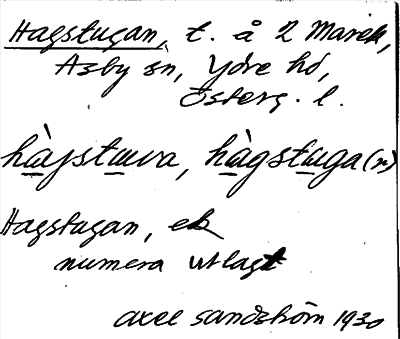 Hagstugan, t. å 2 Marek,
Asby sn, Ydre hd,
Österg. l.
hàgstuva, hàgstuga(n)
Hagstugan, ek
numera utlagt
Axel Sandström 1930